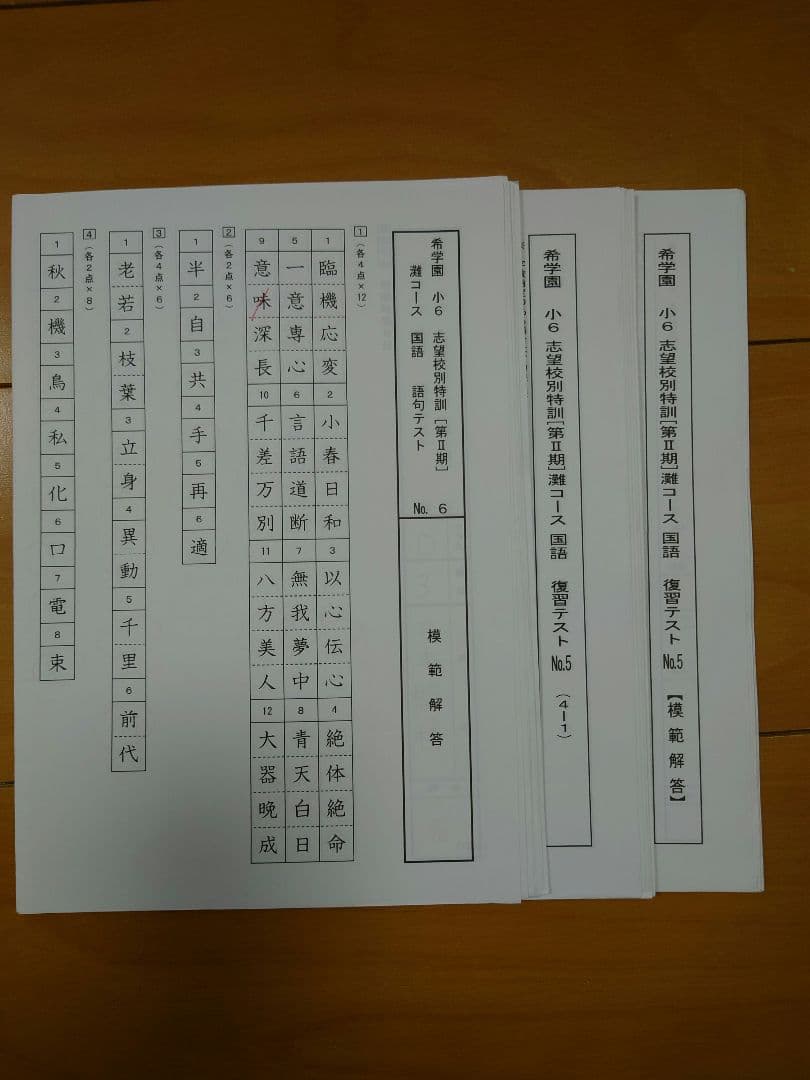 希学園 小6 志望校別特訓[第Ⅱ期]灘コース 国語 復習テスト No.5 【模範解答】
希学園 小6 志望校別特訓[第Ⅱ期]灘コース 国語 復習テスト No.5 (4-1)
希学園 小6 志望校別特訓[第Ⅱ期]
灘コース 国語 語句テスト
No. 6
模範解答
1 (各4点×12)
1 臨機応変 2 小春日和 3 以心伝心 4 絶体絶命
5 一意専心 6 言語道断 7 無我夢中 8 青天白日
9 意味深長 10 千差万別 11 八方美人 12 大器晩成
2 (各2点×6)
1 半 2 自 3 共 4 手 5 再 6 適
3 (各4点×6)
1 老若 2 枝葉 3 立身 4 異動 5 千里 6 前代
4 (各2点×8)
1 秋 2 機 3 鳥 4 私 5 化 6 口 7 電 8 束